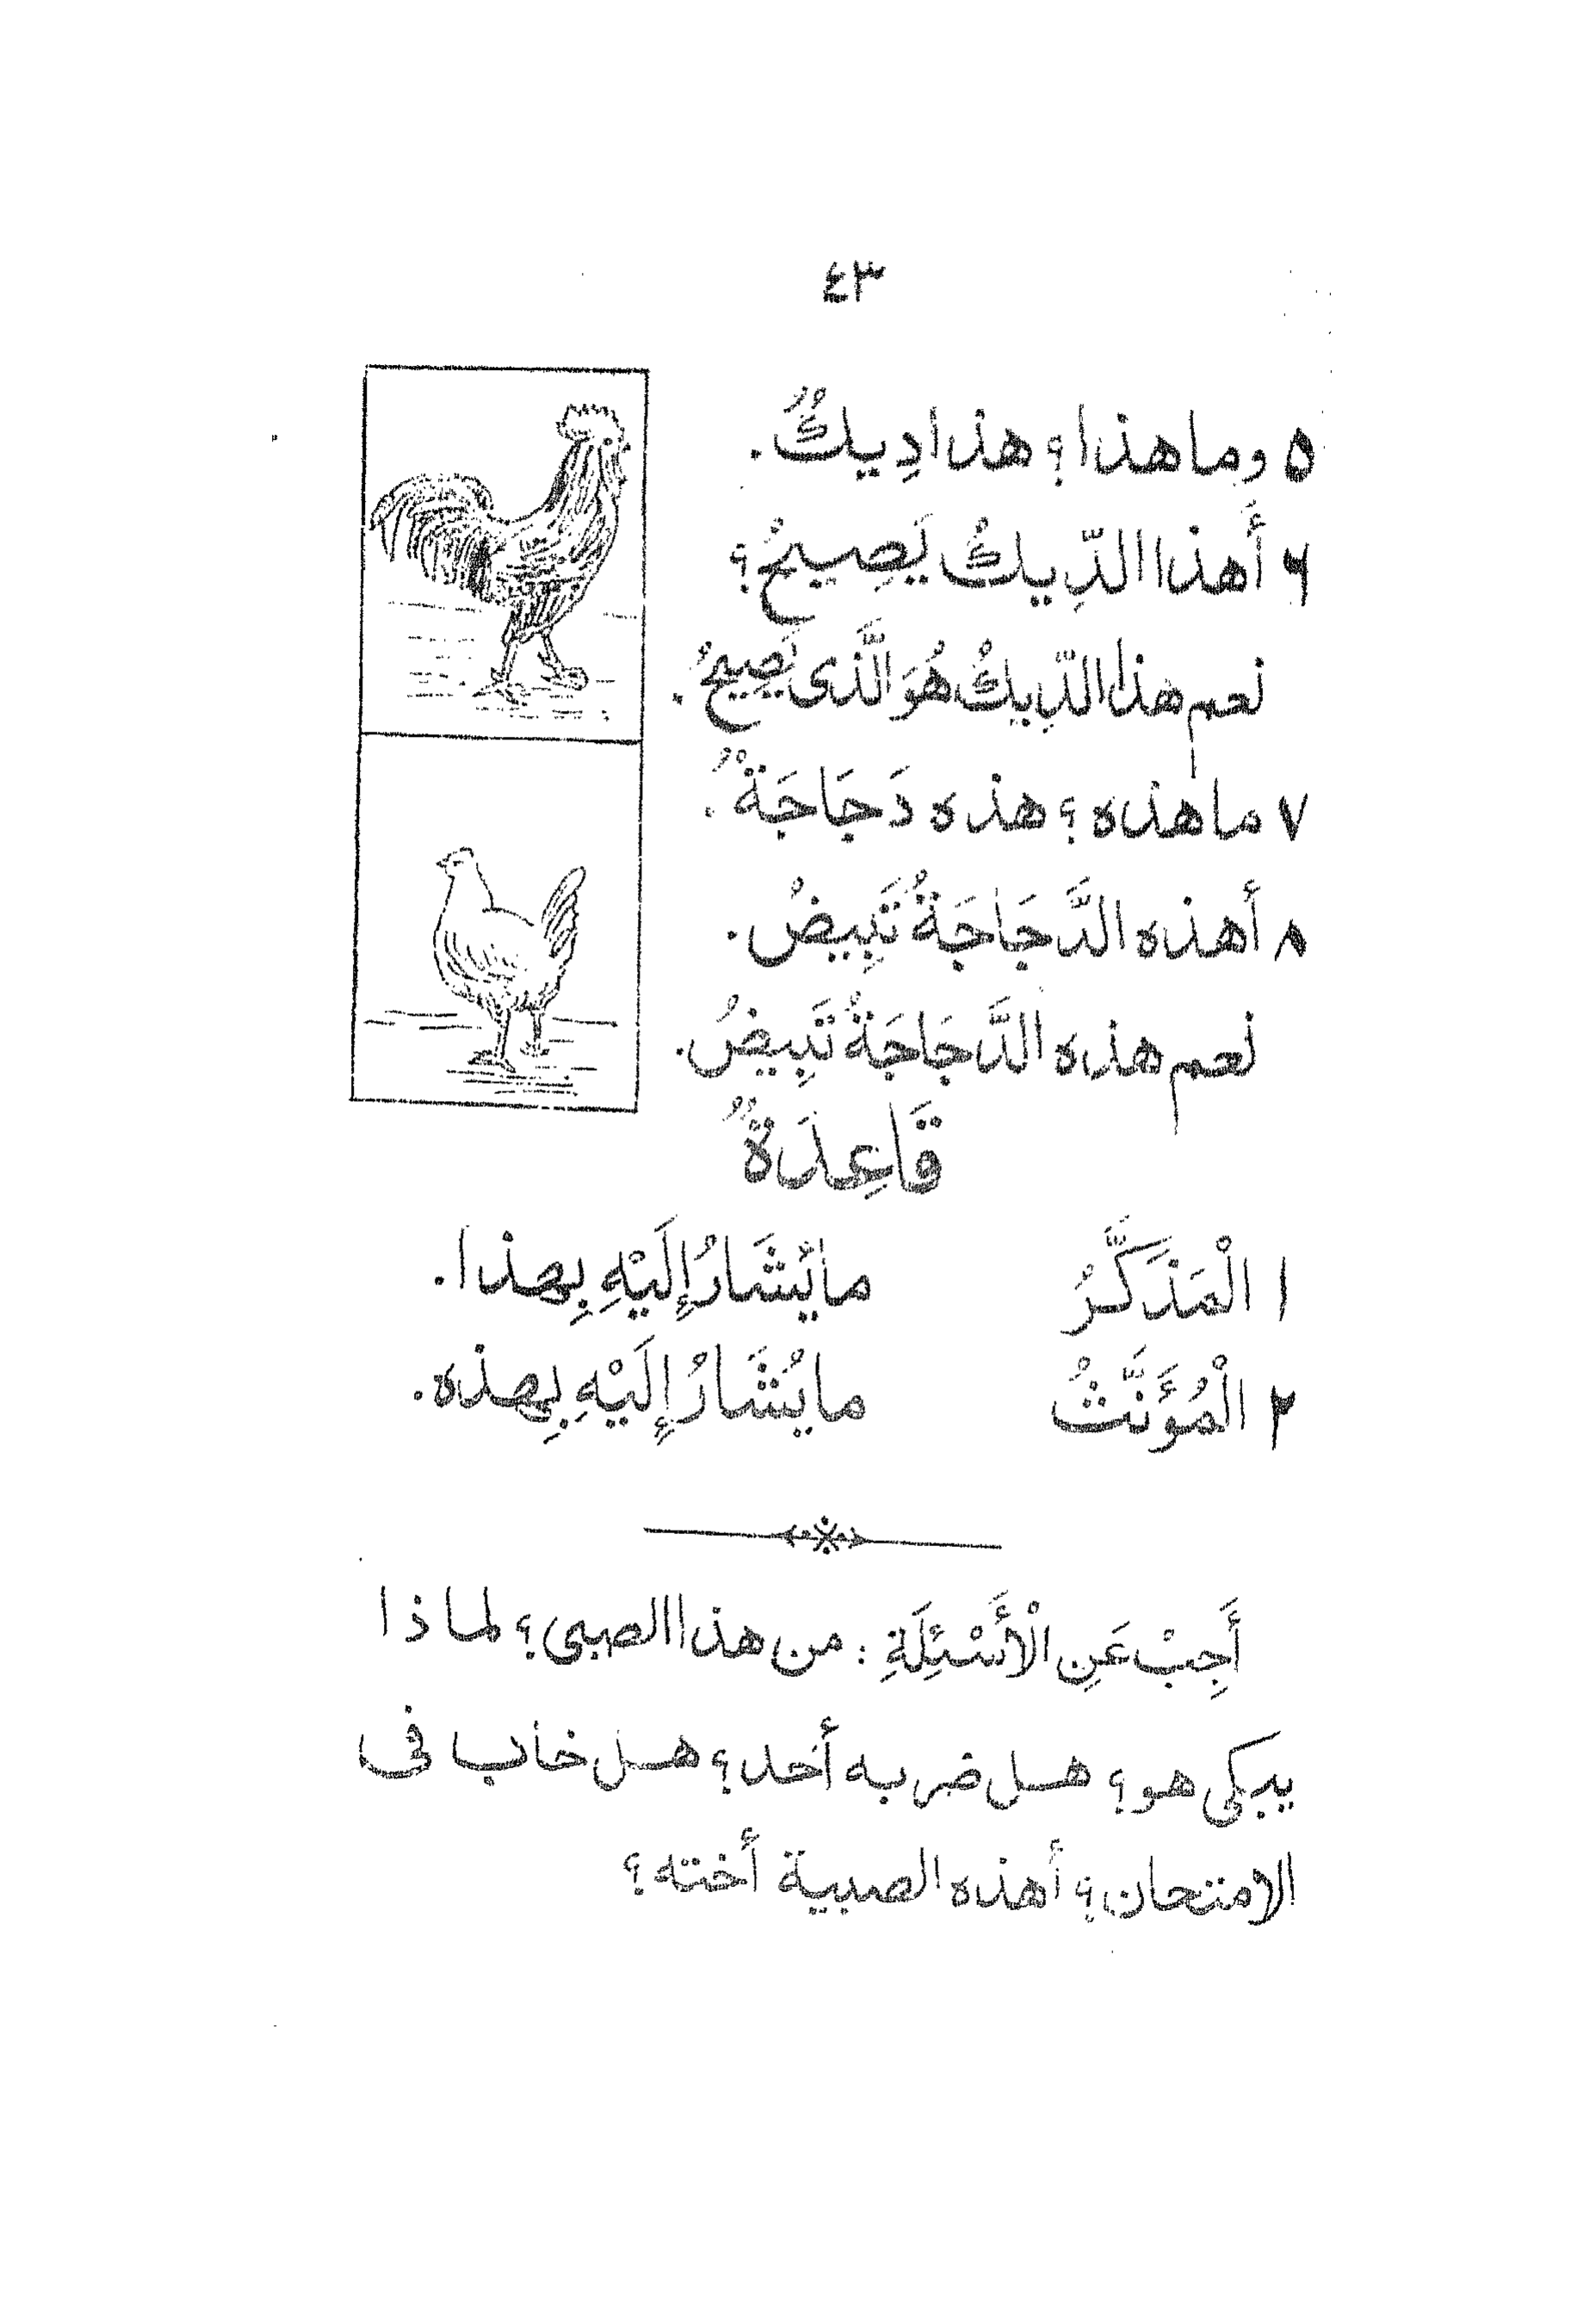 ٤٣
٥ وما هذا؟ هذا دِيكٌ.
٦ أَهذا الدِّيكُ يَصِيحُ؟
نعم هذا الدِّيكُ هُوَ الَّذى يَصِيحُ.
٧ ما هذه؟ هذه دَجَاجَةٌ.
٨ أهذه الدَّجَاجَةُ تَبِيضُ.
نعم هذه الدَّجَاجَةُ تَبِيضُ.
قَاعِدَةٌ
١ الْمَذَكَّرُ ما يُشَارُ إِلَيْهِ بِهذا.
٢ الْمُؤَنَّثُ ما يُشَارُ إِلَيْهِ بِهذه.
أَجِبْ عَنِ الْأَسْئِلَةِ: من هذا الصبى؟ لماذا
يبكى هو؟ هل ضربه أحد؟ هل خاب فى
الامتحان؟ أهذه الصبية أخته؟